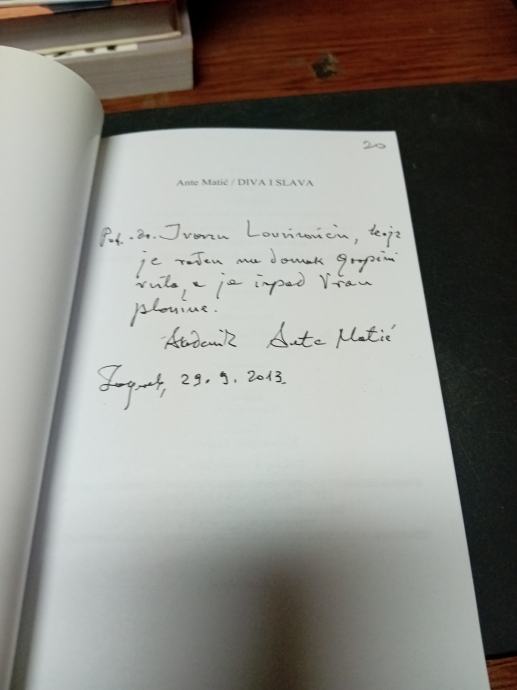 20
Ante Matić / DIVA I SLAVA
Prof. dr. Ivanu Lovrinoviću, koji
je rođen na domak
vrila, a ja ispod Vran
planine.
Akademik Ante Matić
Zagreb, 29. 9. 2013.